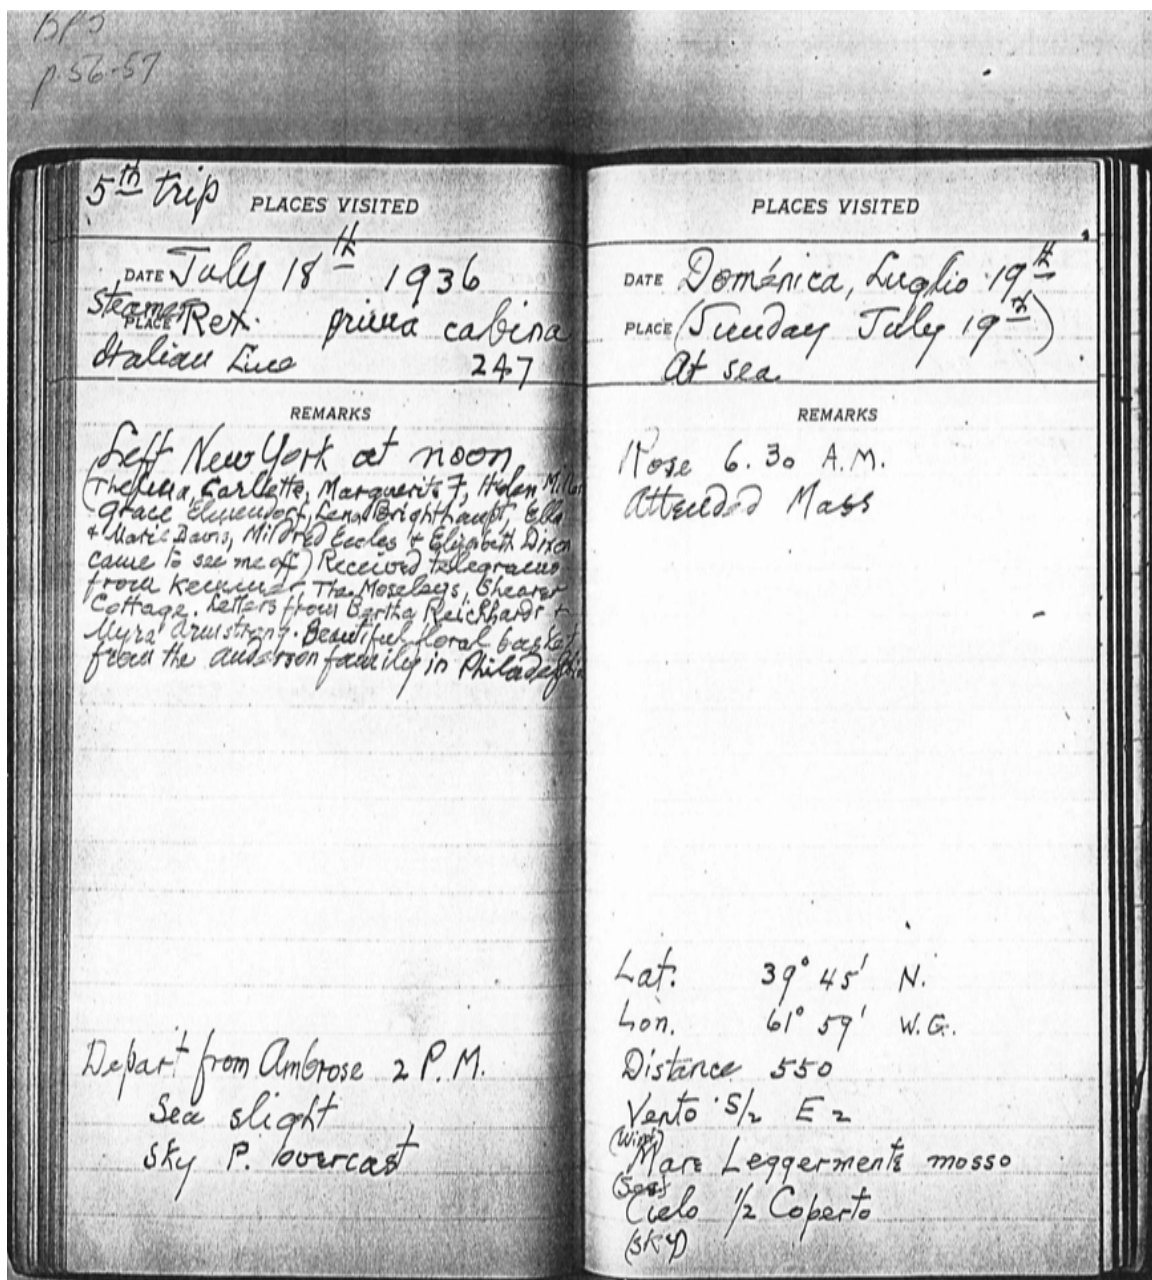 p 56-57
5th trip
PLACES VISITED
DATE July 18th 1936
Steamer
PLACE Rex. prima cabina
Italian Line 247
REMARKS
Left New York at noon
(Thelma, Carlotte, Marguerite F, Helen
Grace Elmendorf, Lena Brighthaupt, Ella
& Marie Davis, Mildred Eccles & Elizabeth Dixon
came to see me off) Received telegrams
from The Moseleys, Shearer
Cottage. Letters from Bertha Reichhardt &
Myra Armstrong. Beautiful floral basket
from the Anderson family in Philadelphia
Depart from Ambrose 2 P.M.
Sea slight
Sky P. overcast
PLACES VISITED
DATE Doménica, Luglio 19th
PLACE (Sunday July 19th)
At sea
REMARKS
Rose 6.30 A.M.
Attended Mass
Lat. 39° 45' N.
Lon. 61° 59' W.G.
Distance 550
Vento S/2 E 2
(Wind)
Mare Leggermente mosso
(Sea)
Cielo 1/2 Coperto
(sky)